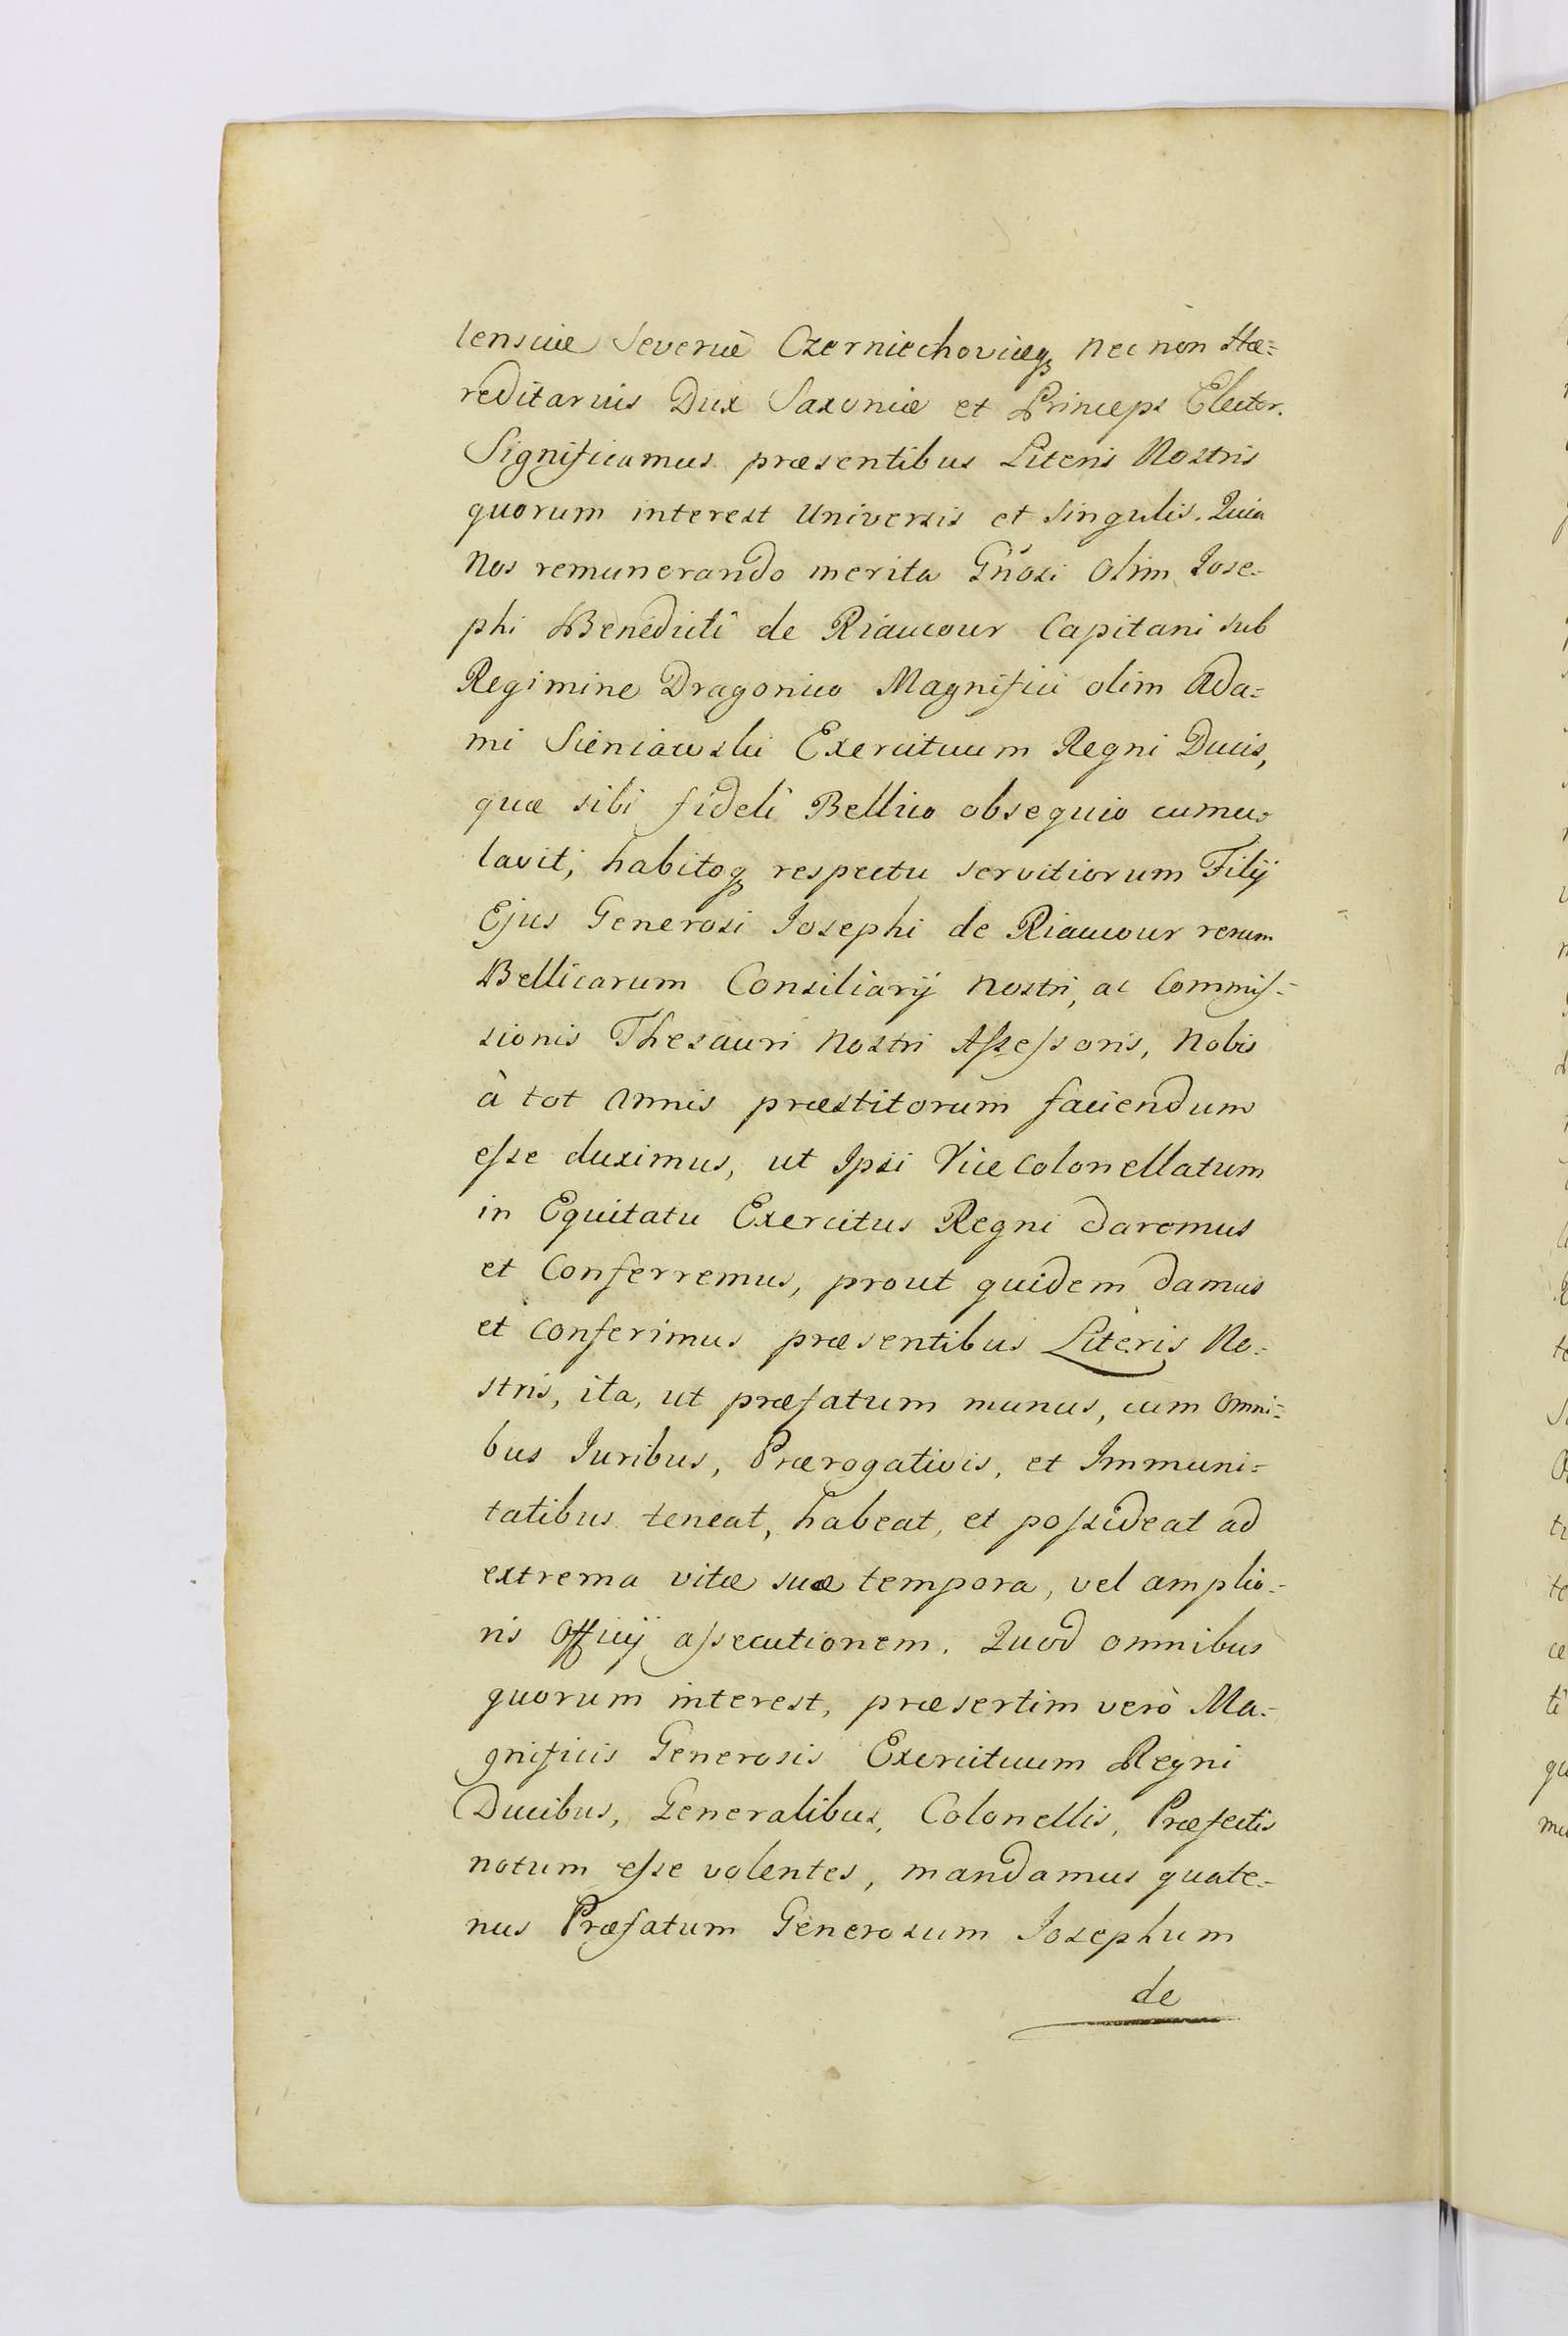 lensciæ Severiæ Czerniechoviæq; nec non Hæ=
reditarius Dux Saxoniæ et Princeps Elector.
Significamus præsentibus Literis Nostris
quorum interest Universis et singulis. Quia
Nos remunerando merita Gnõsi Olim Jose=
phi Benedicti de Riaucour Capitani sub
Regimine Dragonico Magnifici olim Ada=
mi Sieniawski Exercituum Regni Ducis,
quæ sibi fideli Bellico obsequio cumu=
lavit; habitoq; respectu servitiorum Filij
Ejus Generosi Josephi de Riaucour rerum
Bellicarum Consiliarij Nostri, ac Commis=
sionis Thesauri Nostri Assessoris, Nobis
à tot Annis præstitorum faciendum
esse duximus, ut Ipsi Vice colonellatum
in Equitatu Exercitus Regni daremus
et Conferremus, prout quidem damus
et conferimus præsentibus Literis No=
stris, ita, ut præfatum munus, cum omni=
bus Juribus, Prærogativis, et Immuni=
tatibus teneat, habeat, et possideat ad
extrema vitæ suæ tempora, vel amplio=
ris Officij assecutionem. Quod omnibus
quorum interest, præsertim verò Ma=
gnificis Generosis Exercituum Regni
Ducibus, Generalibus, Colonellis, Præfectis
notum esse volentes, mandamus quate=
nus Præfatum Generosum Josephum
de